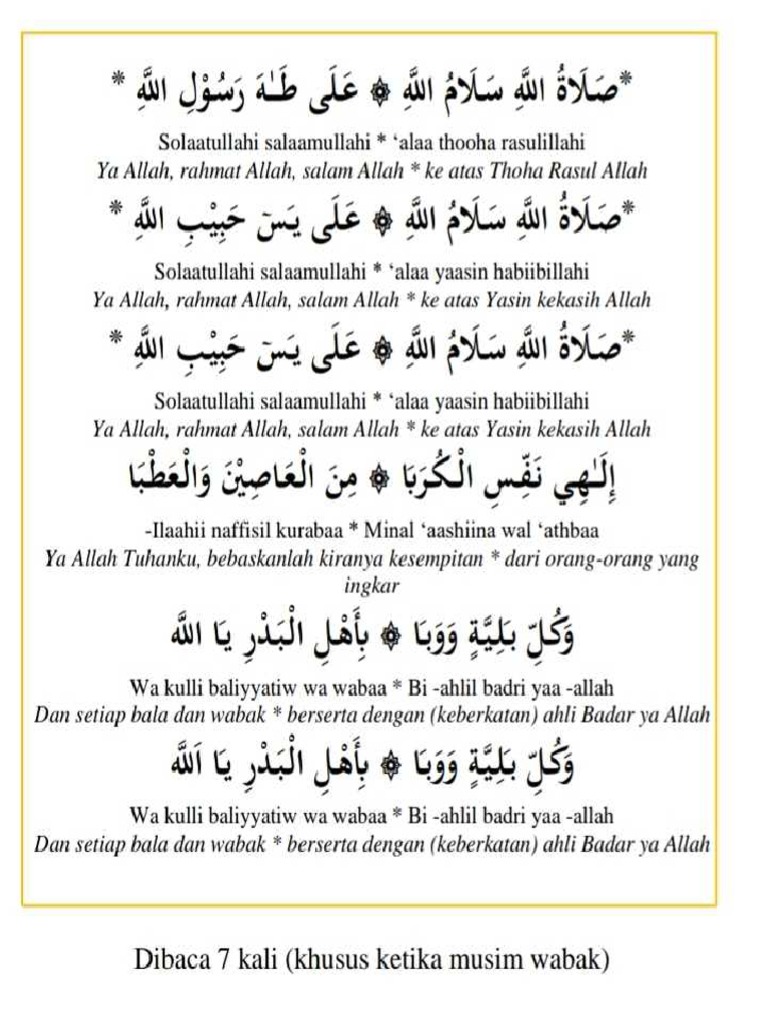 *صَلَاةُ اللَّهِ سَلَامُ اللَّهِ ۞ عَلَى طَـٰهَ رَسُوْلِ اللَّهِ *
Solaatullahi salaamullahi * ‘alaa thooha rasulillahi
Ya Allah, rahmat Allah, salam Allah * ke atas Thoha Rasul Allah
*صَلَاةُ اللَّهِ سَلَامُ اللَّهِ ۞ عَلَى يَسٓ حَبِيْبِ اللَّهِ *
Solaatullahi salaamullahi * ‘alaa yaasin habiibillahi
Ya Allah, rahmat Allah, salam Allah * ke atas Yasin kekasih Allah
*صَلَاةُ اللَّهِ سَلَامُ اللَّهِ ۞ عَلَى يَسٓ حَبِيْبِ اللَّهِ *
Solaatullahi salaamullahi * ‘alaa yaasin habiibillahi
Ya Allah, rahmat Allah, salam Allah * ke atas Yasin kekasih Allah
إِلَـٰهِي نَفِّسِ الْكُرَبَا ۞ مِنَ الْعَاصِيْنَ وَالْعَطْبَا
-Ilaahii naffisil kurabaa * Minal ‘aashiina wal ‘athbaa
Ya Allah Tuhanku, bebaskanlah kiranya kesempitan * dari orang-orang yang
ingkar
وَكُلِّ بَلِيَّةٍ وَوَبَا ۞ بِأَهْلِ الْبَدْرِ يَا اللَّه
Wa kulli baliyyatiw wa wabaa * Bi -ahlil badri yaa -allah
Dan setiap bala dan wabak * berserta dengan (keberkatan) ahli Badar ya Allah
وَكُلِّ بَلِيَّةٍ وَوَبَا ۞ بِأَهْلِ الْبَدْرِ يَا اَللَّه
Wa kulli baliyyatiw wa wabaa * Bi -ahlil badri yaa -allah
Dan setiap bala dan wabak * berserta dengan (keberkatan) ahli Badar ya Allah
Dibaca 7 kali (khusus ketika musim wabak)